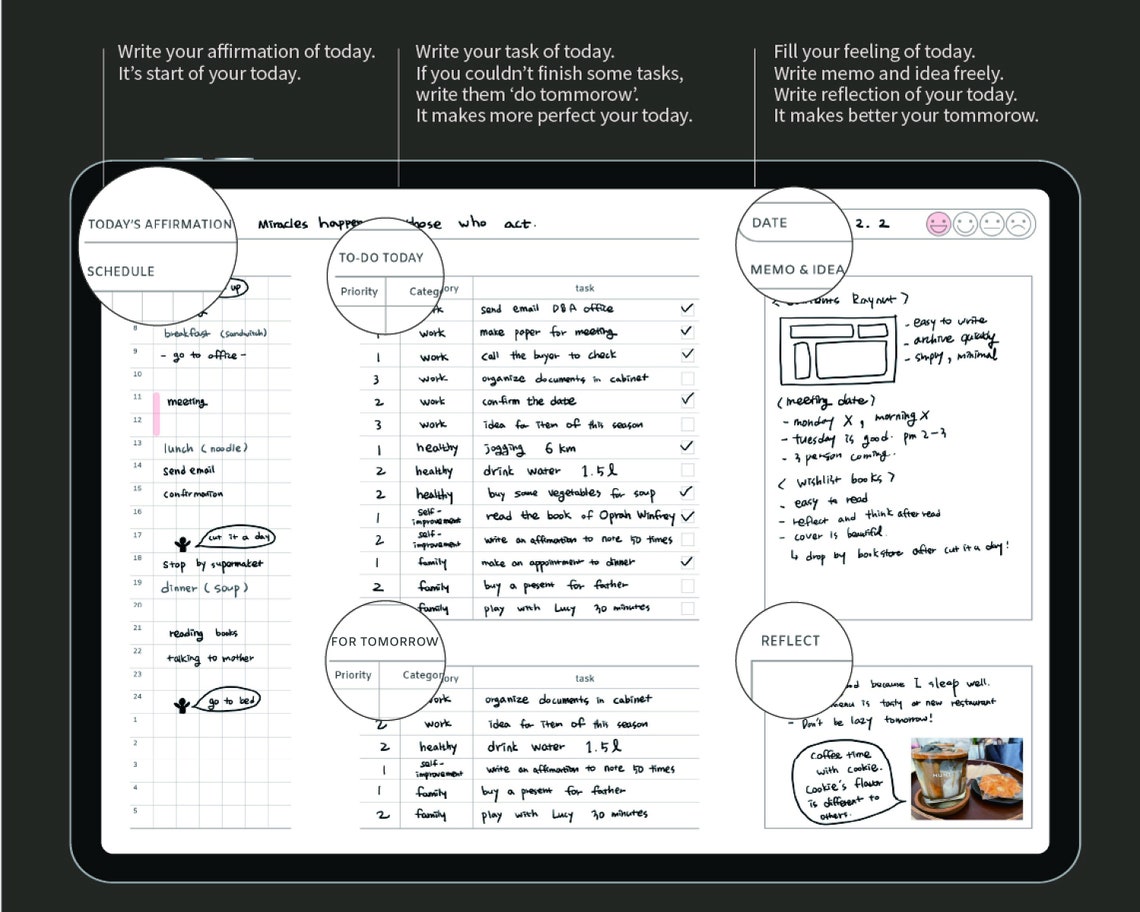 Write your affirmation of today.
It's start of your today.
Write your task of today.
If you couldn't finish some tasks,
write them 'do tommorow'.
It makes more perfect your today.
Fill your feeling of today.
Write memo and idea freely.
Write reflection of your today.
It makes better your tommorow.
TODAY'S AFFIRMATION
Miracles happen those who act.
DATE
2. 2
SCHEDULE
up
8 breakfast (sandwitch)
9 - go to office -
10
11 meeting
12
13 lunch (noodle)
14 send email
15 confirmation
16
17 cut it a day
18 stop by supermaket
19 dinner (soup)
20
21 reading books
22 talking to mother
23
24 go to bed
1
2
3
4
5
TO-DO TODAY
Priority Category task
work send email D&A office ✓
1 work make paper for meeting ✓
1 work call the buyor to check ✓
3 work organize documents in cabinet
2 work confirm the date ✓
3 work idea for item of this season
1 healthy jogging 6 km ✓
2 healthy drink water 1.5l
2 healthy buy some vegetables for soup ✓
1 self-improvement read the book of Oprah Winfrey ✓
2 self-improvement write an affirmation to note 50 times
1 family make an appointment to dinner ✓
2 family buy a present for father
family play with Lucy 30 minutes
FOR TOMORROW
Priority Category task
work organize documents in cabinet
2 work idea for item of this season
2 healthy drink water 1.5l
1 self-improvement write an affirmation to note 50 times
1 family buy a present for father
2 family play with Lucy 30 minutes
MEMO & IDEA
Raynut >
- easy to write
- archive quickly
- simply, minimal
(meeting date)
- monday X, morning X
- tuesday is good. pm 2-3
- 3 person coming.
< wishlist books >
- easy to read
- reflect and think after read
- cover is beautiful.
↳ drop by bookstore after cut it a day!
REFLECT
because I sleep well.
menu is tasty at new restaurant
- Don't be lazy tomorrow!
Coffee time
with cookie.
Cookie's flavor
is different to
others.